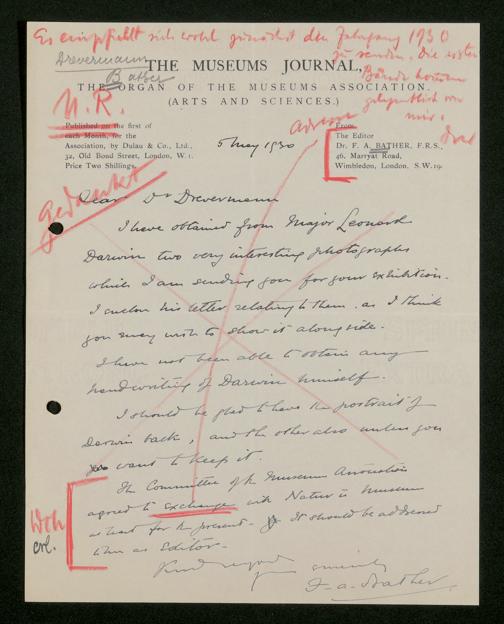 Es empfiehlt sich wohl zunächst den Jahrgang 1930
zu senden. Die
Bände können
gelegentlich von
mir.
Drevermann
Bather
THE MUSEUMS JOURNAL,
THE ORGAN OF THE MUSEUMS ASSOCIATION.
(ARTS AND SCIENCES.)
N. R.
Published on the first of
each Month, for the
Association, by Dulau & Co., Ltd.,
32, Old Bond Street, London, W 1.
Price Two Shillings.
5 May 1930
From
The Editor
Dr. F. A. BATHER, F.R.S.,
46, Marryat Road,
Wimbledon, London, S.W. 19.
gedankt
Dear Dr Drevermann
I have obtained from Major Leonard
Darwin two very interesting photographs
which I am sending you for your exhibition.
I enclose his letter relating to them, as I think
you may wish to show it alongside.
I have not been able to obtain any
handwriting of Darwin himself.
I should be glad to have the portrait of
Darwin back, and the other also unless you
want to keep it.
The Committee of the Museums Association
agreed to exchange with Natur u Museum
at least for the present. It should be addressed
to me as Editor.
Kind regards
yours sincerely
F. A. Bather